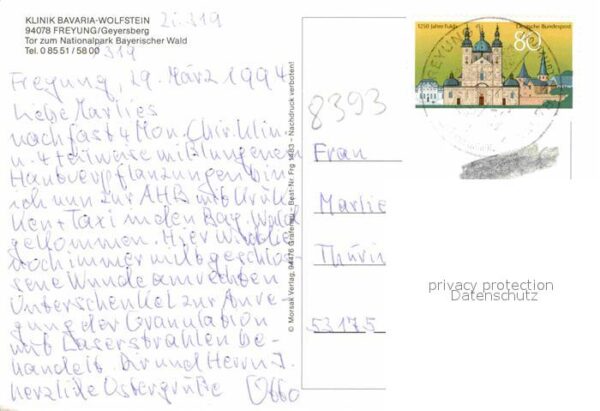 KLINIK BAVARIA-WOLFSTEIN
94078 FREYUNG/Geyersberg
Tor zum Nationalpark Bayerischer Wald
Tel. 0 85 51 / 58 00
319
Zi. 319
Freyung, 29. März 1994
Liebe Marlies
nach fast 4 Mon. Chir. Klin.
u. 4 teilweise mißlungenen
Hautverpflanzungen bin
ich nun zur AHB mit Krük-
ken + Taxi in den Bay. Wald
gekommen. Hier wird die
noch immer nit geschlos-
sene Wunde am rechten
Unterschenkel zur Anre-
gung der Granulation
mit Laserstrahlen be-
handelt. Dir und Herrn J.
herzliche Ostergrüße Otto
© Morsak Verlag, 94476 Grafenau - Best-Nr. Frg 1483 - Nachdruck verboten!
1250 Jahre Fulda
Deutsche Bundespost
80
8393
Frau
Marlie
Thürin
53175
privacy protection
Datenschutz